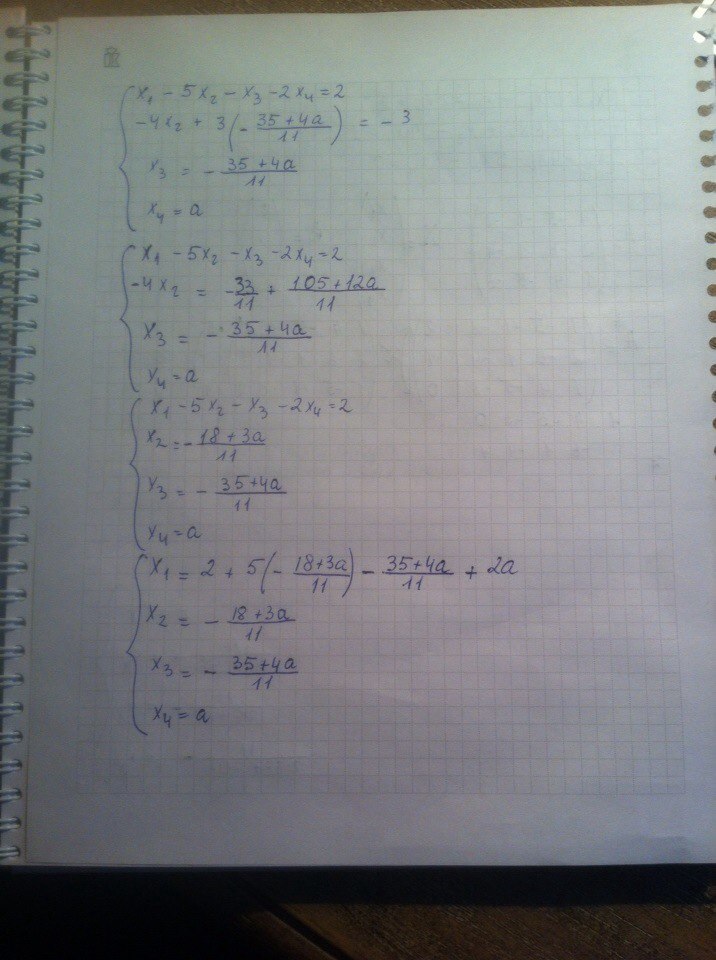 x₁ - 5x₂ - x₃ - 2x₄ = 2
-4x₂ + 3(- (35 + 4a)/11) = - 3
x₃ = - (35 + 4a)/11
x₄ = a
x₁ - 5x₂ - x₃ - 2x₄ = 2
-4x₂ = -33/11 + (105 + 12a)/11
x₃ = - (35 + 4a)/11
x₄ = a
x₁ - 5x₂ - x₃ - 2x₄ = 2
x₂ = - (18 + 3a)/11
x₃ = - (35 + 4a)/11
x₄ = a
x₁ = 2 + 5(- (18 + 3a)/11) - (35 + 4a)/11 + 2a
x₂ = - (18 + 3a)/11
x₃ = - (35 + 4a)/11
x₄ = a